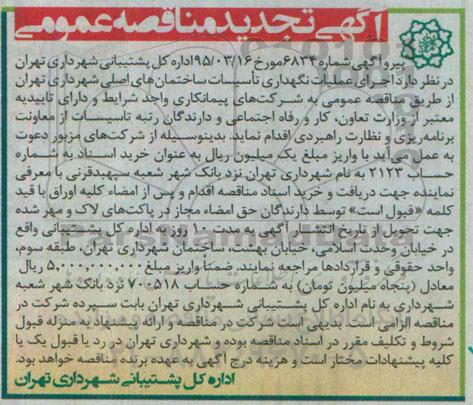 آگهی تجدید مناقصه عمومی
پیرو آگهی شماره ۶۸۳۴ مورخ ۹۵/۰۳/۱۶ اداره کل پشتیبانی شهرداری تهران
در نظر دارد اجرای عملیات نگهداری تأسیسات ساختمان‌های اصلی شهرداری تهران
از طریق مناقصه عمومی به شرکت‌های پیمانکاری واجد شرایط و دارای تاییدیه
معتبر از وزارت تعاون، کار و رفاه اجتماعی و دارندگان رتبه تاسیسات از معاونت
برنامه‌ریزی و نظارت راهبردی اقدام نماید. بدینوسیله از شرکت‌های مزبور دعوت
به عمل می‌آید با واریز مبلغ یک میلیون ریال به عنوان خرید اسناد به شماره
حساب ۲۱۲۳ به نام شهرداری تهران نزد بانک شهر شعبه سپهبدقرنی با معرفی
نماینده جهت دریافت و خرید اسناد مناقصه اقدام و پس از امضاء کلیه اوراق با قید
کلمه «قبول است» توسط دارندگان حق امضاء مجاز در پاکت‌های لاک و مهر شده
جهت تحویل از تاریخ انتشار آگهی به مدت ۱۰ روز به اداره کل پشتیبانی واقع
در خیابان وحدت اسلامی، خیابان بهشت، ساختمان شهرداری تهران، طبقه سوم،
واحد حقوقی و قراردادها مراجعه نمایند. ضمناً واریز مبلغ ۵۰۰,۰۰۰,۰۰۰ ریال
معادل (پنجاه میلیون تومان) به شماره حساب ۷۰۰۵۱۸ نزد بانک شهر شعبه
شهرداری به نام اداره کل پشتیبانی شهرداری تهران بابت سپرده شرکت در
مناقصه الزامی است. بدیهی است شرکت در مناقصه و ارائه پیشنهاد به منزله قبول
شروط و تکلیف مقرر در اسناد مناقصه بوده و شهرداری تهران در رد یا قبول یک یا
کلیه پیشنهادات مختار است و هزینه درج آگهی به عهده برنده مناقصه خواهد بود.
اداره کل پشتیبانی شهرداری تهران